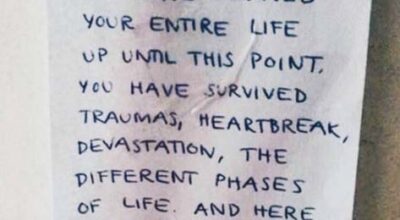 YOUR ENTIRE LIFE
UP UNTIL THIS POINT.
YOU HAVE SURVIVED
TRAUMAS, HEARTBREAK,
DEVASTATION, THE
DIFFERENT PHASES
OF LIFE. AND HERE